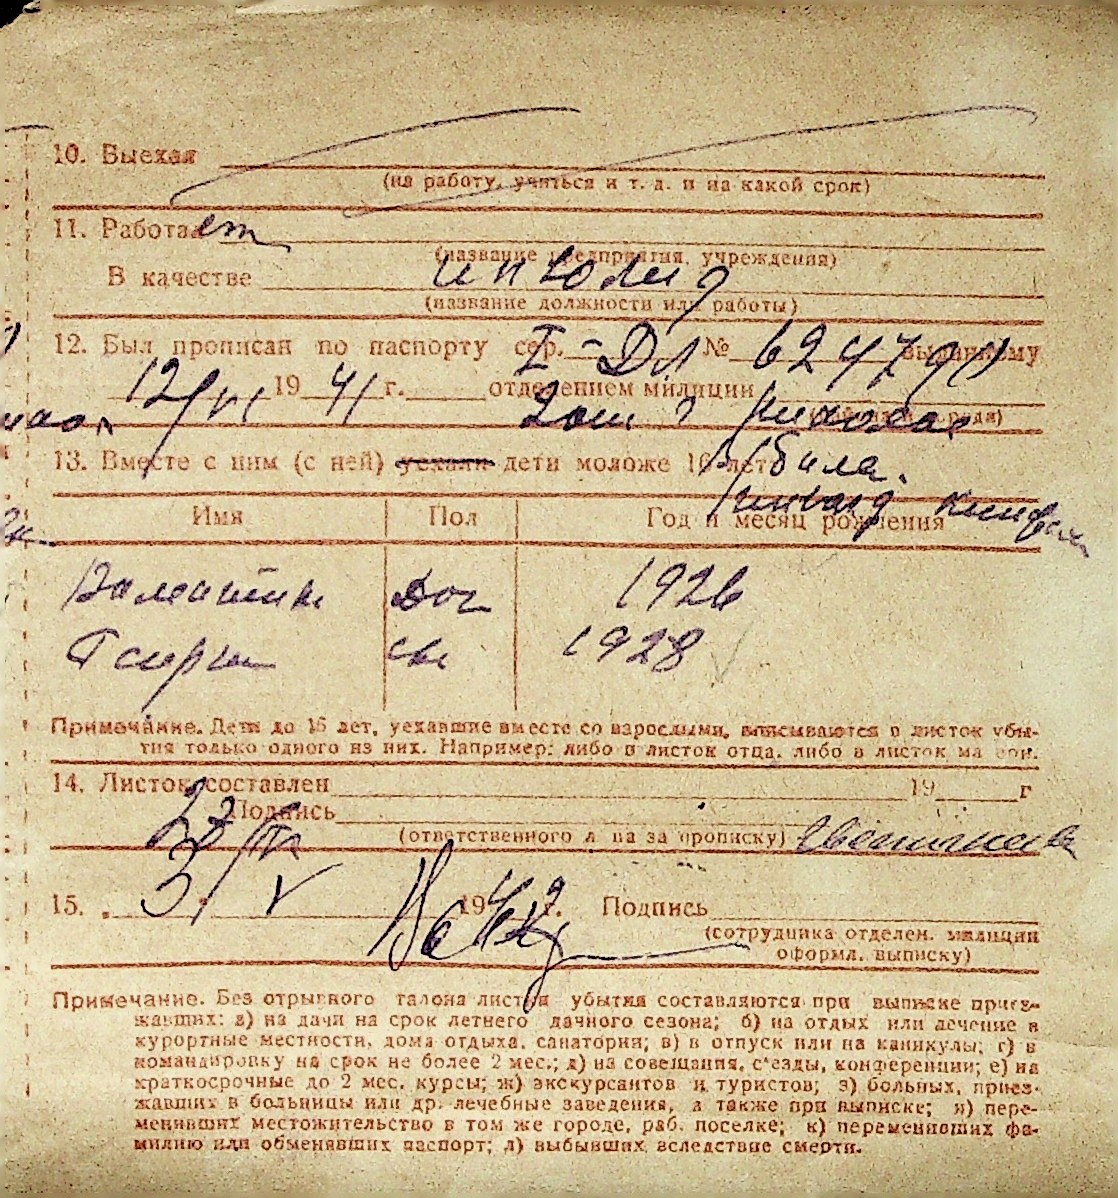 10. Выехал
(на работу, учиться и т. д. и на какой срок)
11. Работает
(название предприятия, учреждения)
В качестве инволид
(название должности или работы)
12. Был прописан по паспорту сер. I-ДЛ № 624790 выданному
12/VI 1941 г. отделением милиции
13. Вместе с ним (с ней) уехали дети моложе 16 лет
Имя Пол Год и месяц рождения
Валентин доч 1926
сы 1928
Примечание. Дети до 16 лет, уехавшие вместе со взрослыми, вписываются в листок убы-
тия только одного из них. Например: либо в листок отца, либо в листок ма ери.
14. Листок составлен 19 г
Подпись
(ответственного л ца за прописку)
15. 3/V 1942 г. Подпись
(сотрудника отделен. милиции
оформл. выписку)
Примечание. Без отрывного талона листки убытия составляются при выписке приез-
жавших: а) на дачи на срок летнего дачного сезона; б) на отдых или лечение в
курортные местности, дома отдыха, санатории; в) в отпуск или на каникулы; г) в
командировку на срок не более 2 мес.; д) на совещания, с'езды, конференции; е) на
краткосрочные до 2 мес. курсы; ж) экскурсантов и туристов; з) больных, приез-
жавших в больницы или др. лечебные заведения, а также при выписке; и) пере-
менивших местожительство в том же городе, раб. поселке; к) переменивших фа-
милию или обменявших паспорт; л) выбывших вследствие смерти.